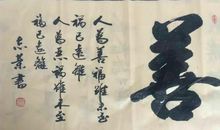 善
人為善福雖未至
禍已遠離
人為惡禍雖未至
福已遠離
書